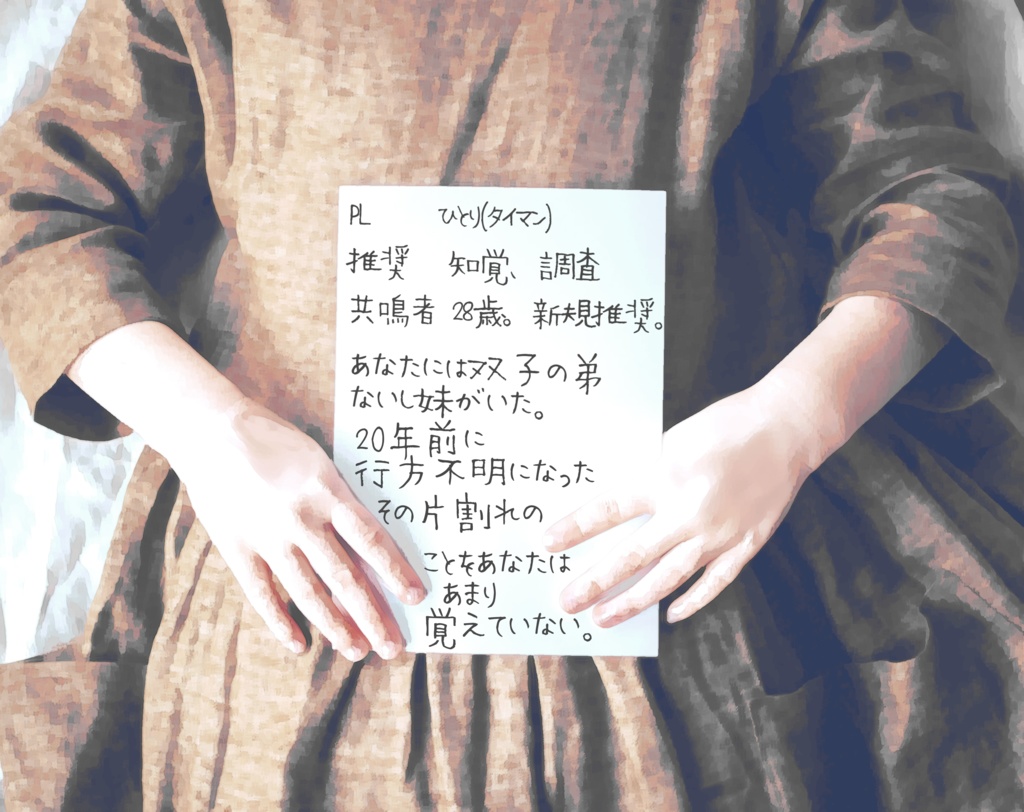 PL ひとり(タイマン)
推奨 知覚、調査
共鳴者 28歳。新規推奨。
あなたには双子の弟
ないし妹がいた。
20年前に
行方不明になった
その片割れの
ことをあなたは
あまり
覚えていない。